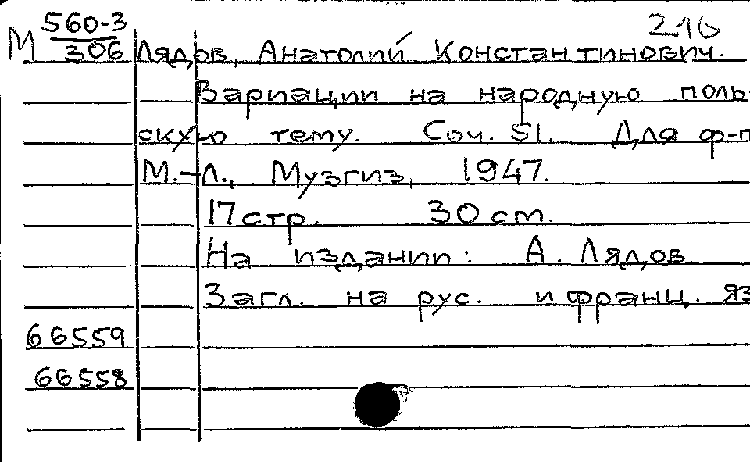 М 560-3 210
306 Лядов, Анатолий Константинович.
Вариации на народную поль-
скую тему. Соч. 51. Для ф-п
М.-Л., Музгиз, 1947.
17 стр. 30 см.
На издании: А. Лядов
Загл. на рус. и франц. яз
66559
66558